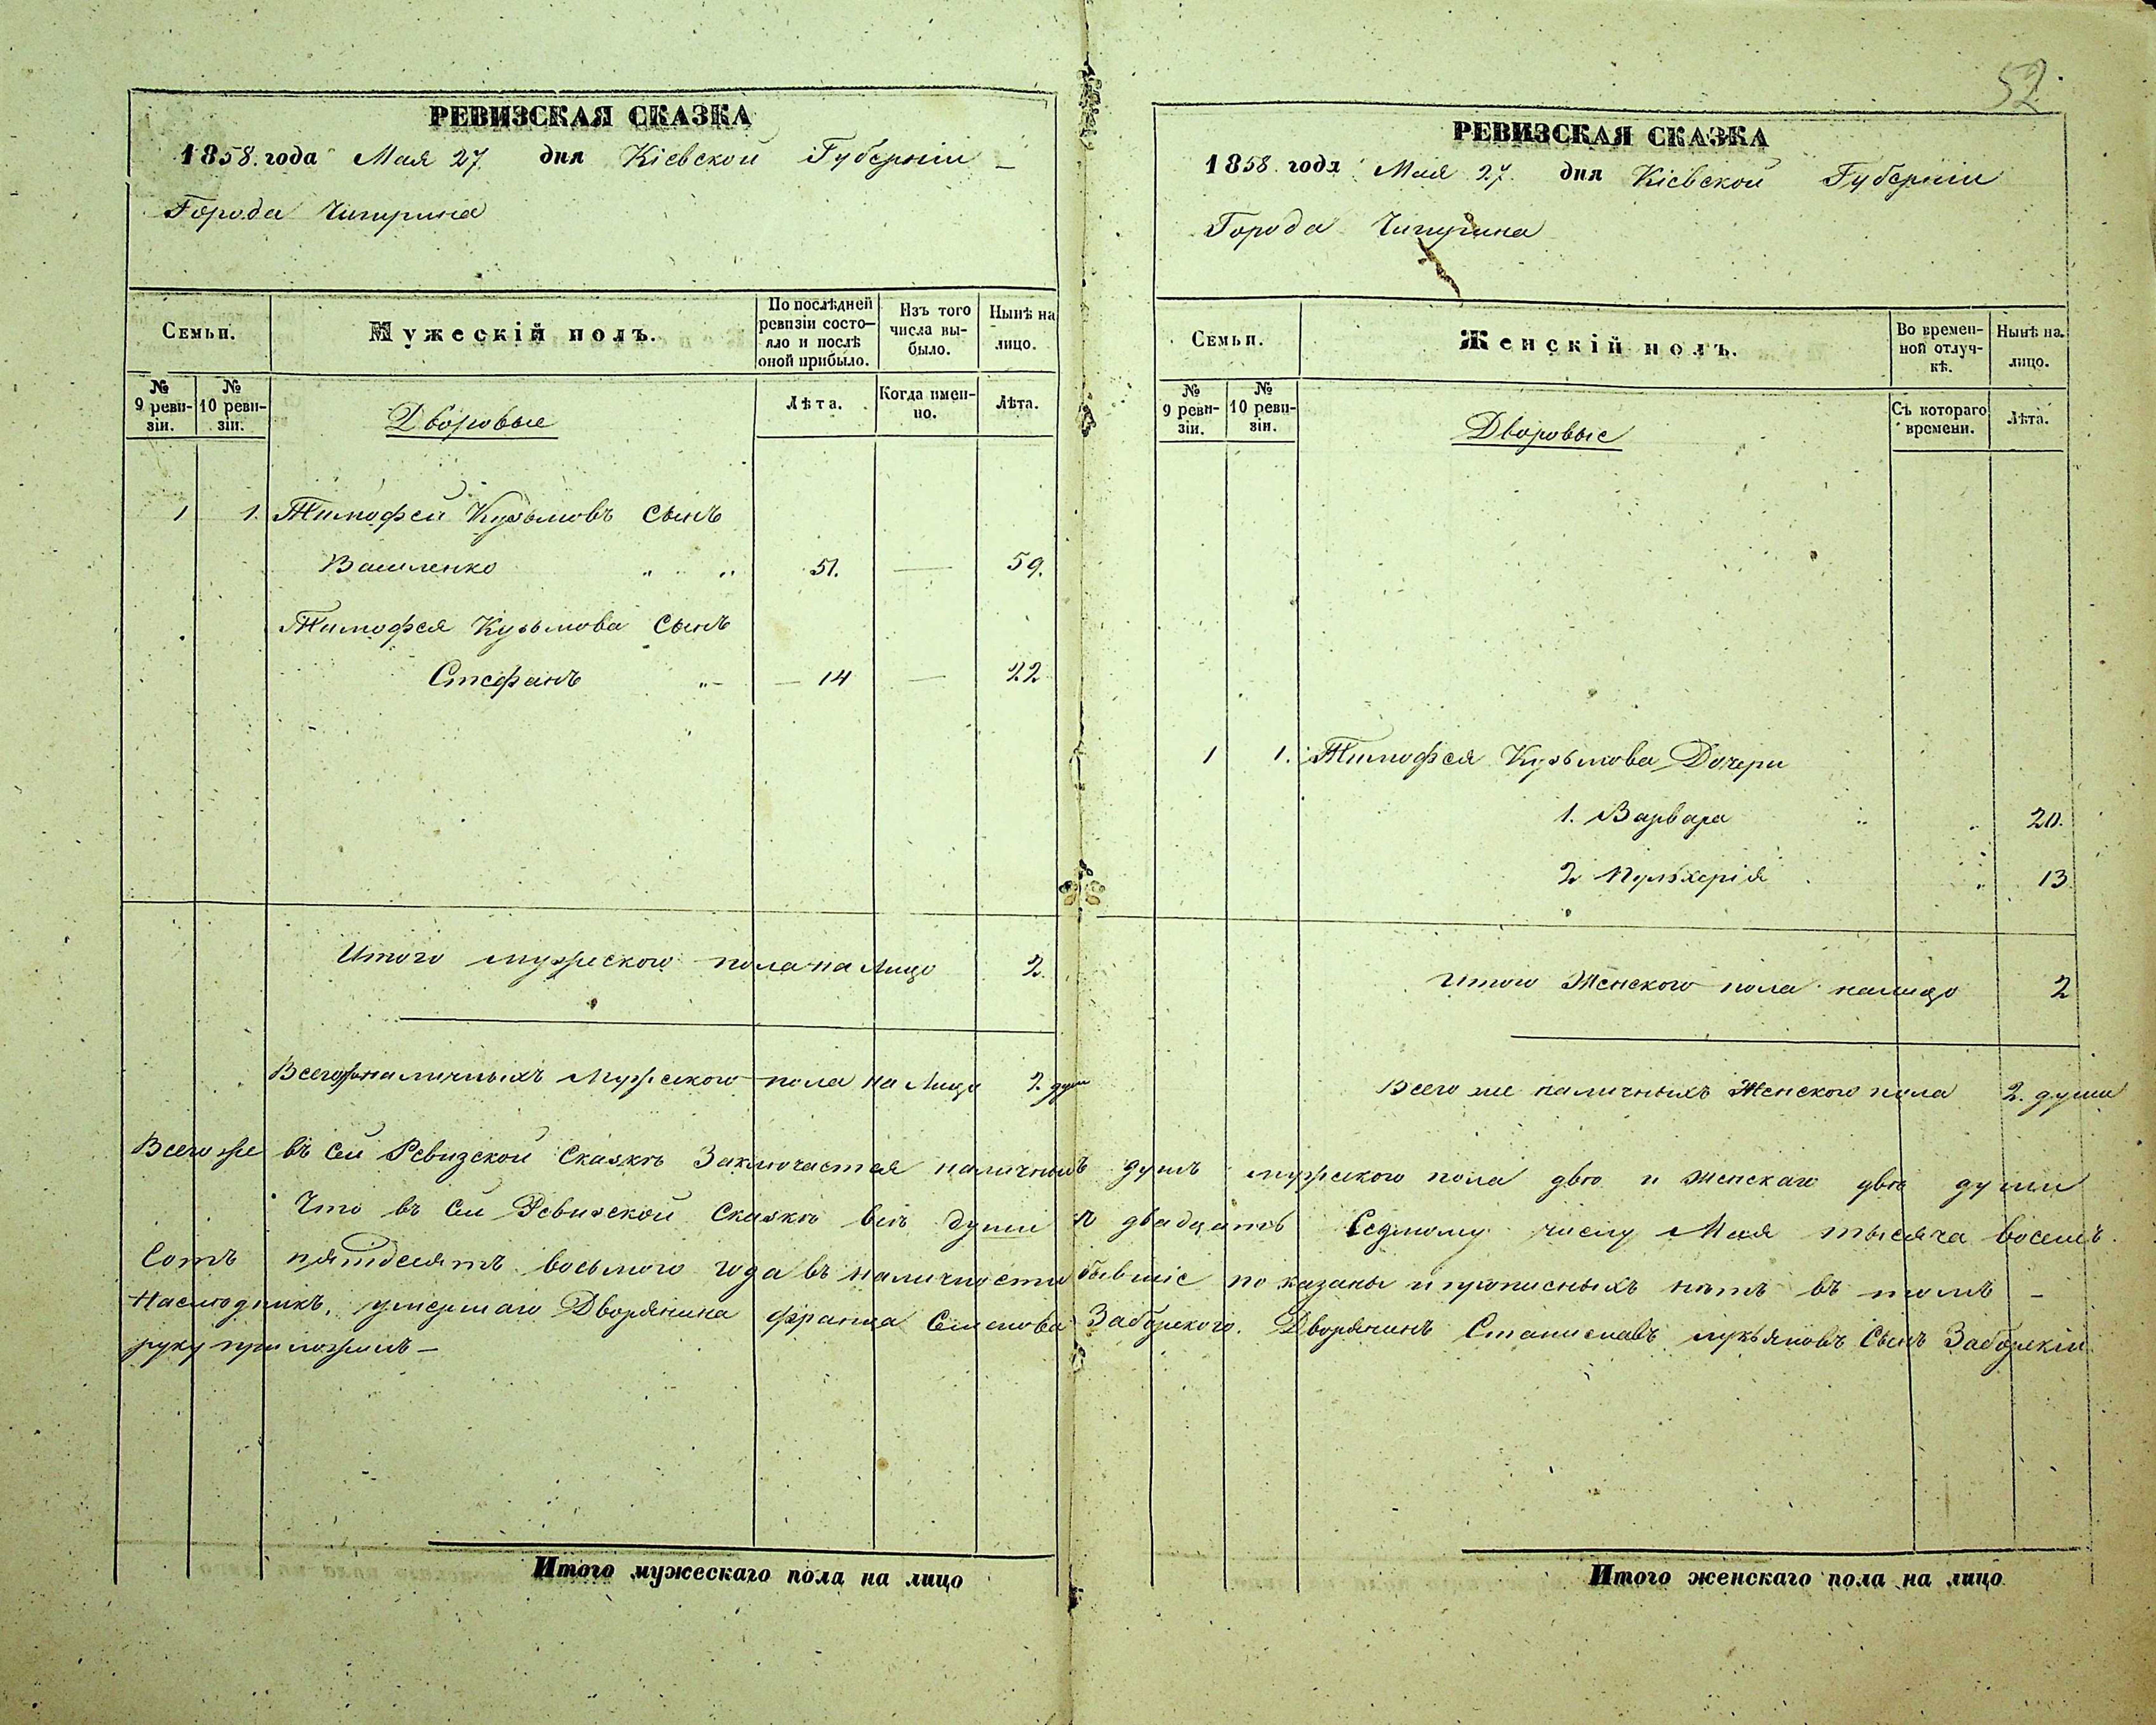 РЕВИЗСКАЯ СКАЗКА
1858. года Мая 27. дня Кіевской Губерніи
Города Чигирина
Семьи.
Мужескій полъ.
По послѣдней ревизіи состояло и послѣ оной прибыло.
Изъ того числа выбыло.
Нынѣ на лицо.
№ 9 ревизіи.
№ 10 ревизіи.
Дворовые
Лѣта.
Когда именно.
Лѣта.
1 1. Тимофей Кузьмовъ сынъ
Василенко 51. — 59.
Тимофея Кузьмова сынъ
Стефанъ — 14 — 22
Итого мужескаго пола на лицо 2.
Всего же наличныхъ мужескаго пола на лицо 2. души
52
РЕВИЗСКАЯ СКАЗКА
1858. года Мая 27. дня Кіевской Губерніи
Города Чигирина
Семьи.
Женскій полъ.
Во временной отлучкѣ.
Нынѣ на лицо.
№ 9 ревизіи.
№ 10 ревизіи.
Дворовые
Съ котораго времени.
Лѣта.
1 1. Тимофея Кузьмова Дочери
1. Варвара 20.
2 Пульхерія 13.
Итого Женского пола налицо 2
Всего же наличныхъ Женского пола 2. души
Всего же въ сей Ревизской Сказкѣ Заключается наличныхъ душъ мужеского пола двѣ и женскаго двѣ души
Что въ сей Ревизской Сказкѣ всѣ души къ двадцать Седмому числу Мая тысяча восемь
сотъ пятдесятъ восьмого года въ наличности бывшіе показаны и прописныхъ нѣтъ въ томъ —
Наслѣдникъ, умершаго Дворянина Франца Семенова Заборского. Дворянинъ Станиславъ лукьяновъ Сынъ Заборскій
руку приложилъ —
Итого мужескаго пола на лицо
Итого женскаго пола на лицо